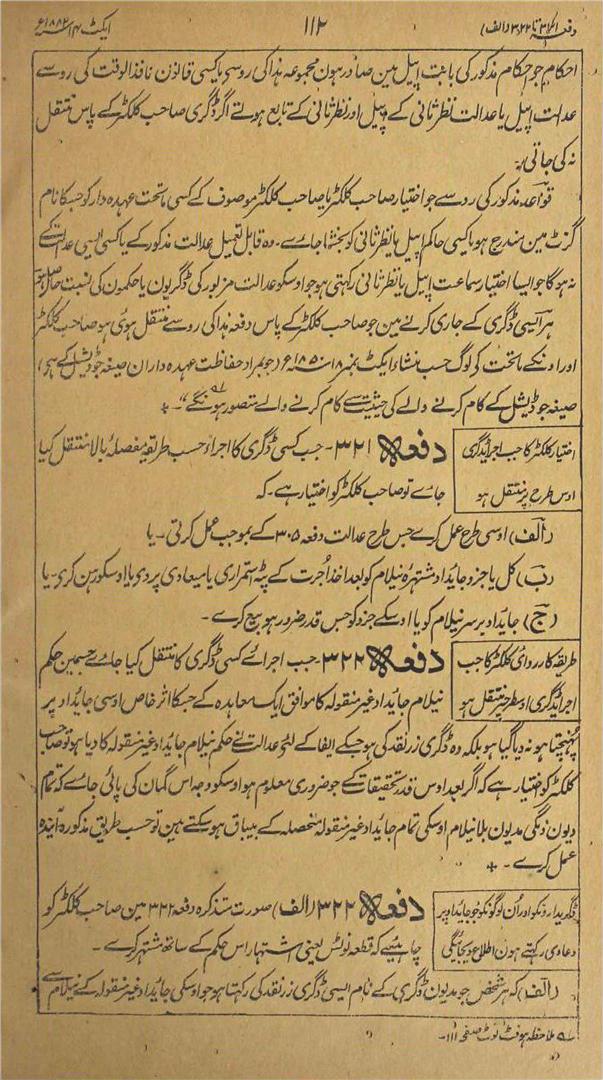 دفعہ ۳۲۱ تا ۳۲۲ (الف)
۱۱۲
ایکٹ ۱۴ ۱۸۸۲ء
احکام جو حکام مذکور کی بابت اپیل مین صادر ہون مجموعہ ہذا کی روسے یا کسی قانون نافذ الوقت کی روسے
عدالت اپیل یا عدالت نظر ثانی کے اپیل اور نظر ثانی کے تابع ہوتے اگر ڈگری صاحب کلکٹر کے پاس منتقل
نہ کی جاتی۔
قواعد مذکور کی رو سے جو اختیار صاحب کلکٹر یا صاحب کلکٹر موصوف کے کسی ماتحت عہدہ دار کو جسکا نام
گزٹ مین مندرج ہو یا کسی حاکم اپیل یا نظر ثانی کو بخشا جاے۔ وہ قابل تعمیل عدالت مذکور کے یا کسی ایسی عدالت کے
نہ ہوگا جو ایسا اختیار سماعت اپیل یا نظر ثانی رکھتی ہو جو اوسکو عدالت مزبور کی ڈگریون یا حکمون کی نسبت حاصل ہو
ہر ایسی ڈگری کے جاری کرنے مین جو صاحب کلکٹر کے پاس دفعہ ہذا کی رو سے منتقل ہوئی ہو صاحب کلکٹر
اور اونکے ماتحت کی لوگ حسب منشاء ایکٹ نمبر ۱۸ ۱۸۵۰ء (جو بمراد حفاظت عہدہ داران صیغہ جوڈیشل کے ہی)
صیغہ جوڈیشل کے کام کرنے والے کی حیثیت سے کام کرنے والے متصور ہونگے۔
اختیار کلکٹر کا جب اجراے ڈگری
اوس طرح پر منتقل ہو
دفعہ ۳۲۱۔ جب کسی ڈگری کا اجراء حسب طریقہ مفصلۂ بالا منتقل کیا
جاے تو صاحب کلکٹر کو اختیار ہے۔ کہ
(الف) اوسی طرح عمل کرے جس طرح عدالت دفعہ ۳۰۵ کے بموجب عمل کرتی۔ یا
(ب) کل یا جزو جایداد مشتہرہ نیلام کو بعد اخذ اُجرت کے پٹہ استمراری یا میعادی پر دی یا اوسکو رہن کری۔ یا
(ج) جایداد بر سر نیلام کو یا اوسکے جزو کو جس قدر ضرور ہو بیع کرے۔
طریقہ کارروائی کلکٹر کا جب
اجراے ڈگری اوسطرح پر منتقل ہو
دفعہ ۳۲۲۔ جب اجراے کسی ڈگری کا منتقل کیا جاے جسمین حکم
نیلام جایداد غیر منقولہ کا موافق ایک معاہدہ کے جسکا اثر خاص اوسی جایداد پر
پہنچتا ہو نہ دیا گیا ہو بلکہ وہ ڈگری زر نقد کی ہو جسکے ایفا کے لئے عدالت نے حکم نیلام جایداد غیر منقولہ کا دیا ہو تو صاحب
کلکٹر کو اختیار ہے کہ اگر بعد اوس قدر تحقیقات کے جو ضروری معلوم ہو اوسکو وجہ اس گمان کی پائی جاے کہ تمام
دیون ڈگری مدیون بلا نیلام اوسکی تمام جایداد غیر منقولہ منحصلہ کے بیباق ہو سکتے ہین تو حسب طریق مذکورہ آیندہ
عمل کرے۔
ڈگریدارونکو اور اُن لوگونکو جو جایداد پر
دعاوی رکھتے ہون اطلاع دیجائیگی
دفعہ ۳۲۲ (الف) صورت متذکرہ دفعہ ۳۲۲ مین صاحب کلکٹر کو
چاہئیے کہ قطعہ نوٹس یعنی اشتہار اس حکم کے ساتھ مشتہر کرے۔
(الف) کہ ہر شخص جو مدیون ڈگری کے نام ایسی ڈگری زر نقد کی رکھتا ہو جو اوسکی جایداد غیر منقولہ کے نیلام سے
ملاحظہ ہو فٹ نوٹ صفحہ ۱۱۱۔